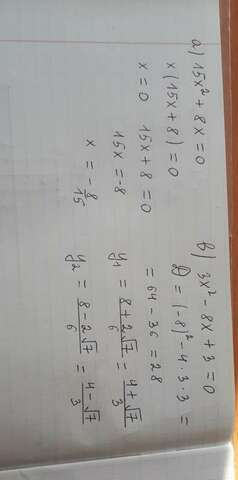 а) 15x² + 8x = 0
x(15x + 8) = 0
x = 0   15x + 8 = 0
15x = -8
x = -8/15
в) 3x² - 8x + 3 = 0
D = (-8)² - 4·3·3 =
= 64 - 36 = 28
y₁ = (8 + 2√7)/6 = (4 + √7)/3
y₂ = (8 - 2√7)/6 = (4 - √7)/3